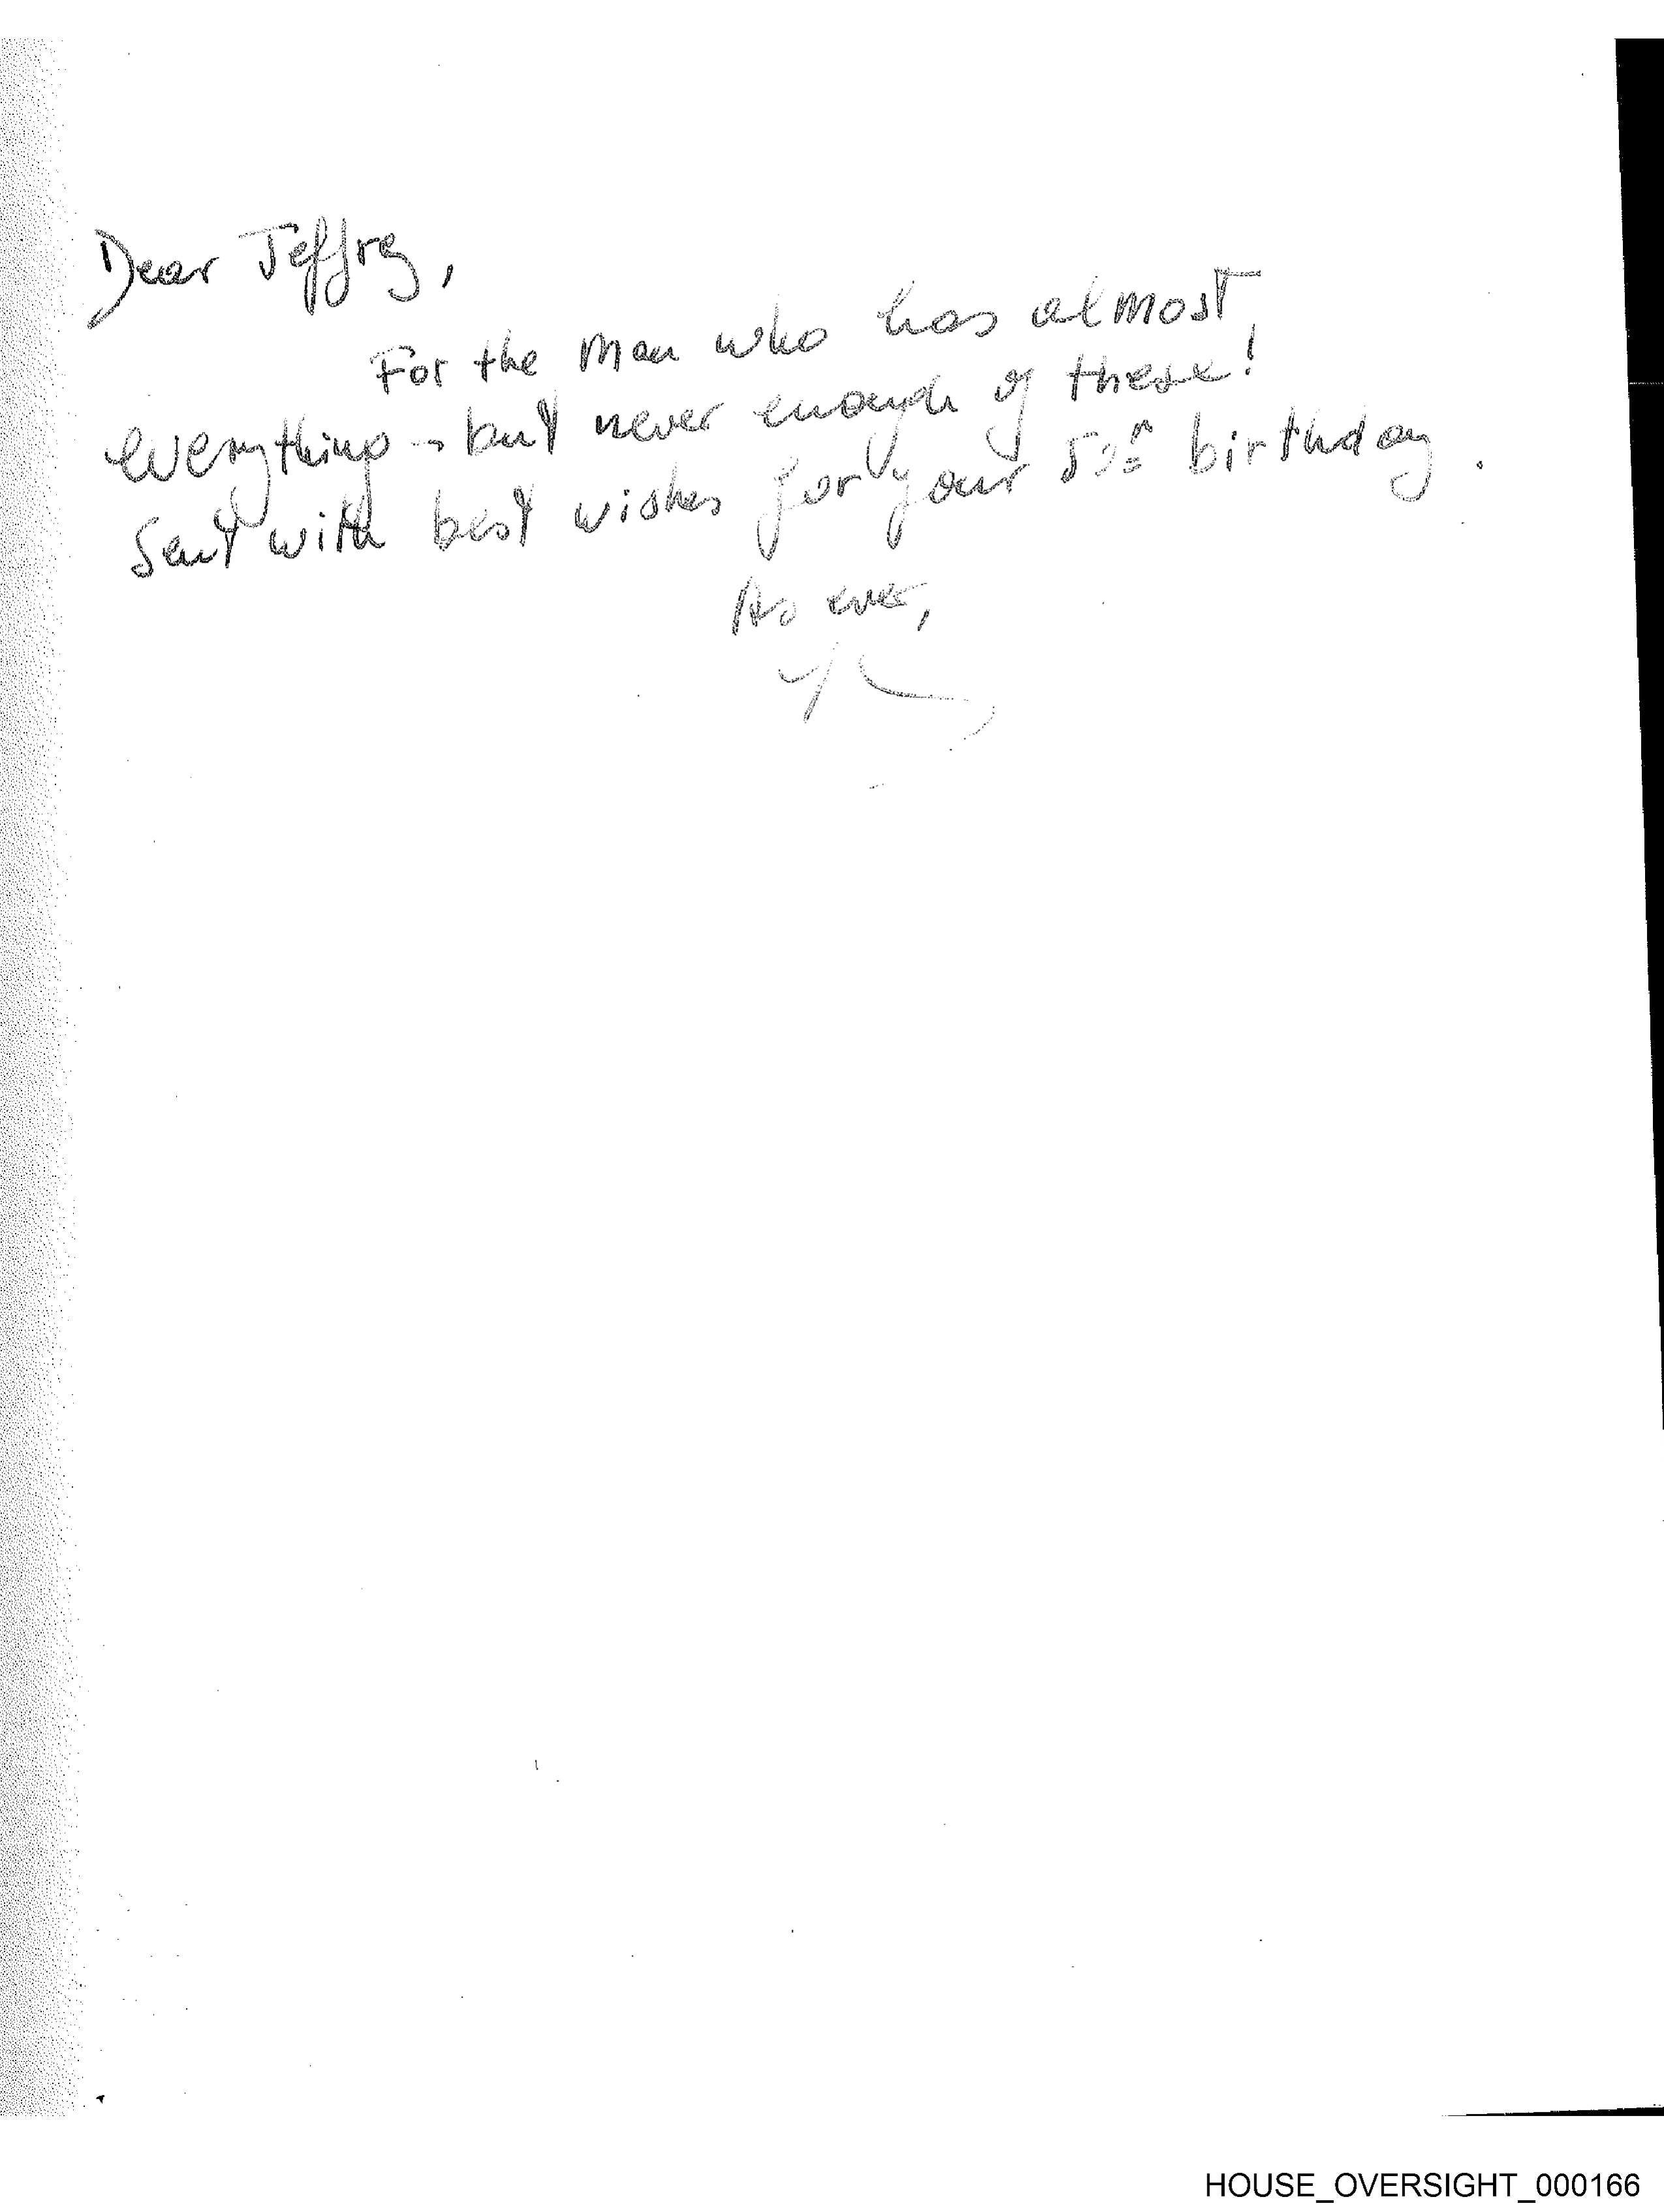 Dear Jeffrey,
For the man who has almost
everything - but never enough of these!
Sent with best wishes for your birthday.
As ever,
HOUSE_OVERSIGHT_000166